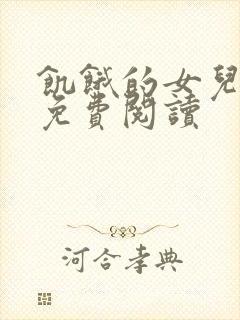 飢餓的女兒
免費閱讀
河合孝典